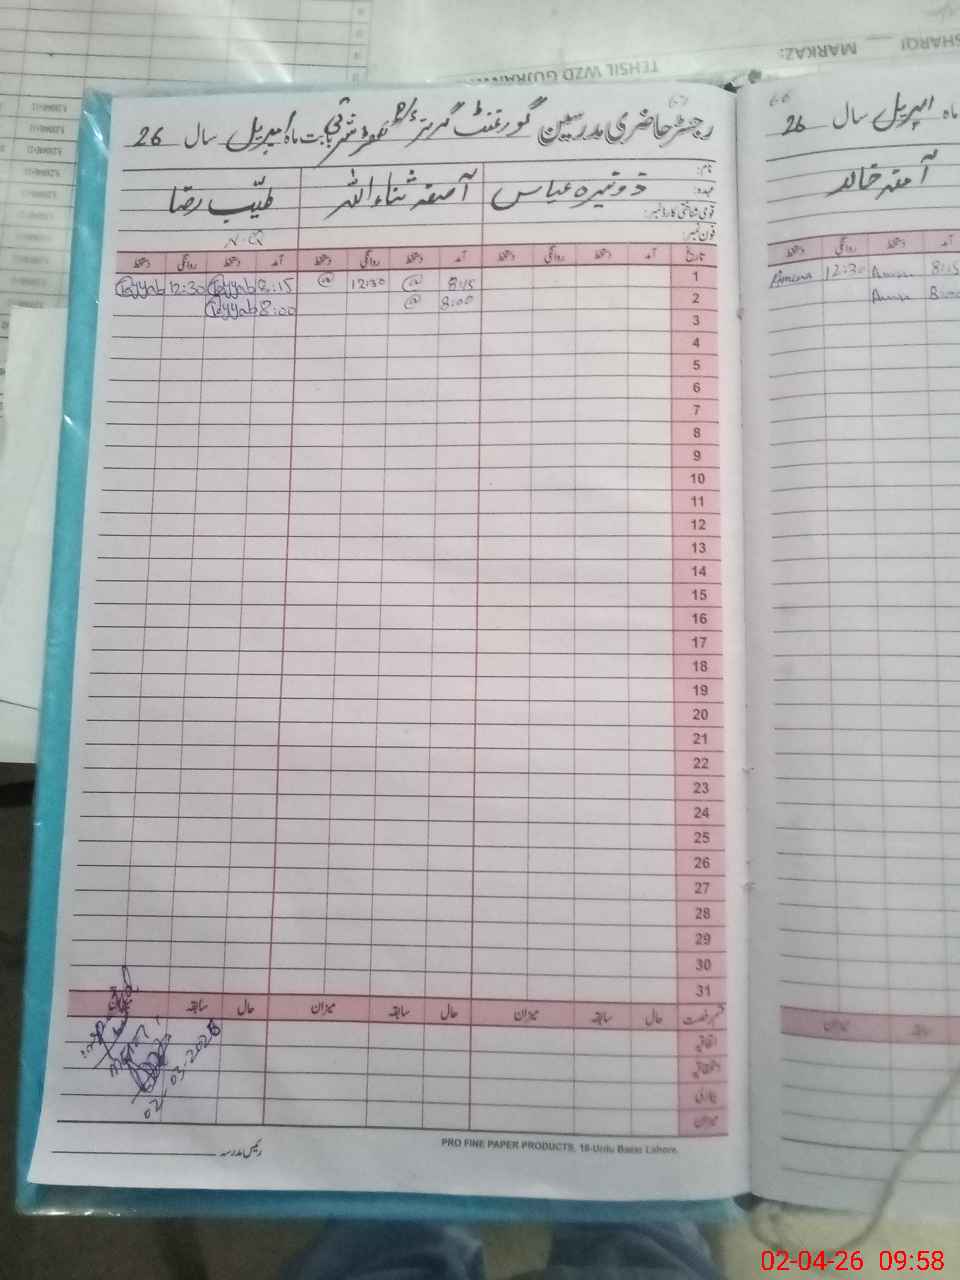 SHARQI MARKAZ:
TEHSIL WZO GUJRANWALA
67
رجسٹر حاضری مدرسین گورنمنٹ گرلز شرقی بابت ماہ اپریل سال 26
نام:
عہدہ:
قومی شناختی کارڈ نمبر:
فون نمبر:
عباس
آصفہ ثناء اللہ
طیّب رضا
N-CQ
تاریخ آمد دستخط روانگی دستخط آمد دستخط روانگی دستخط آمد دستخط روانگی دستخط
1 8:15 @ 12:30 @ 8:15 Tayyab 12:30 Tayyab
2 8:00 @ 8:00 Tayyab
3
4
5
6
7
8
9
10
11
12
13
14
15
16
17
18
19
20
21
22
23
24
25
26
27
28
29
30
31
قسم رخصت حال سابقہ میزان حال سابقہ میزان حال سابقہ میزان
اتفاقیہ
استحقاقیہ
بیماری
میزان
02-03-2026
رئیس مدرسہ
PRO FINE PAPER PRODUCTS, 18-Urdu Bazar Lahore.
66
ماہ اپریل سال 26
آمنہ خالد
آمد دستخط روانگی دستخط
8:15 Amna 12:30 Amena
8:00 Amna
سابقہ میزان
02-04-26 09:58